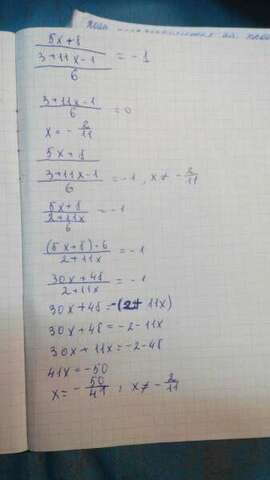 (5x+8)/((3+11x-1)/6) = -1
(3+11x-1)/6 = 0
x = -2/11
(5x+8)/((3+11x-1)/6) = -1, x ≠ -2/11
(5x+8)/((2+11x)/6) = -1
((5x+8)·6)/(2+11x) = -1
(30x+48)/(2+11x) = -1
30x+48 = -(2+11x)
30x+48 = -2-11x
30x+11x = -2-48
41x = -50
x = -50/41, x ≠ -2/11